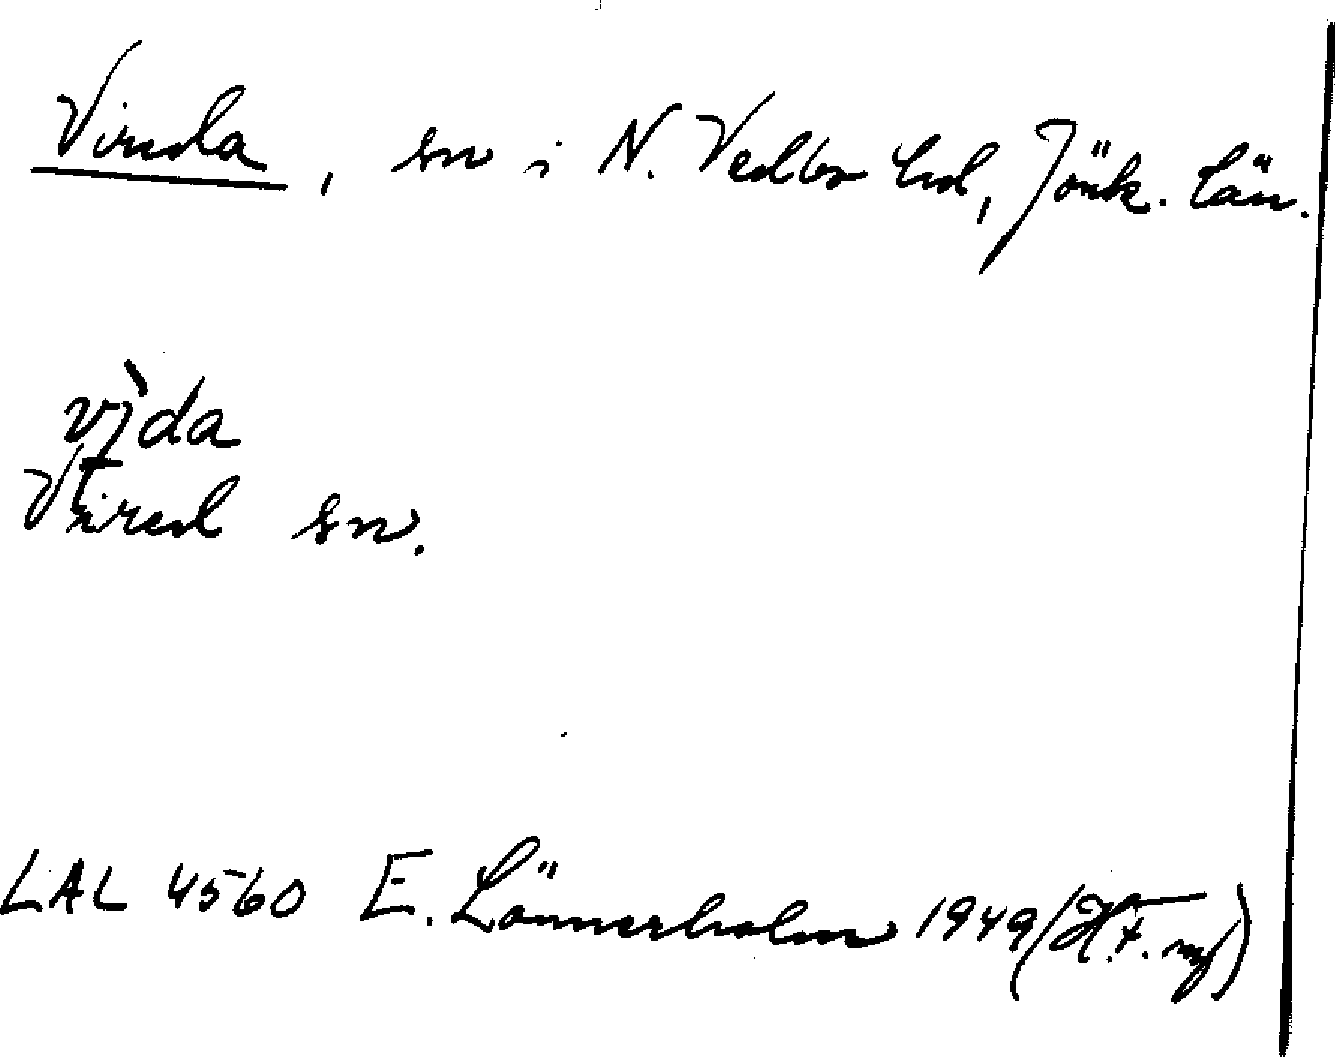 Virsda, sn i N. Vedbo hd, Jönk. län.
vìda
Vired sn.
LAL 4560 E. Lönnerholm 1949